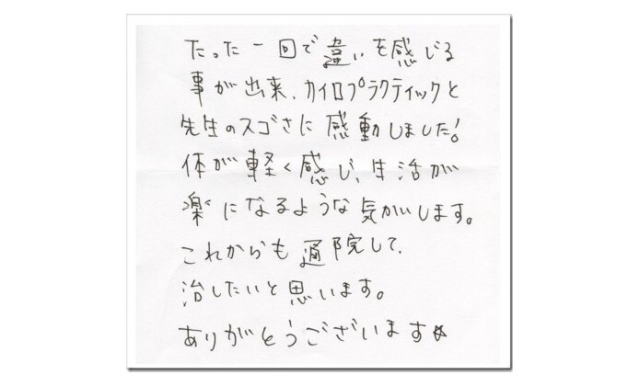 たった一回で違いを感じる
事が出来、カイロプラクティックと
先生のスゴさに感動しました!
体が軽く感じ、生活が
楽になるような気がします。
これからも通院して、
治したいと思います。
ありがとうございます☆